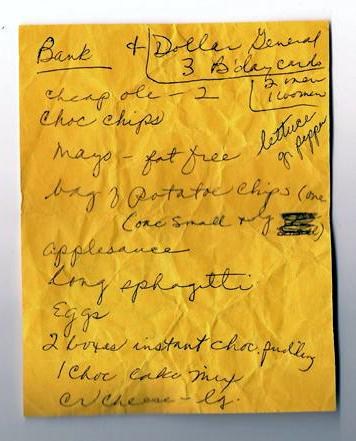 Bank & Dollar General
3 B'day cards
2 men
1 women
cheap ole - 2
choc chips
lettuce
gr. pepper
Mayo - fat free
bag of Potatoe chips (one
(one small + lg
applesauce
long sphagetti
Eggs
2 boxes instant choc. pudding
1 choc cake mix
cr cheese - lg.